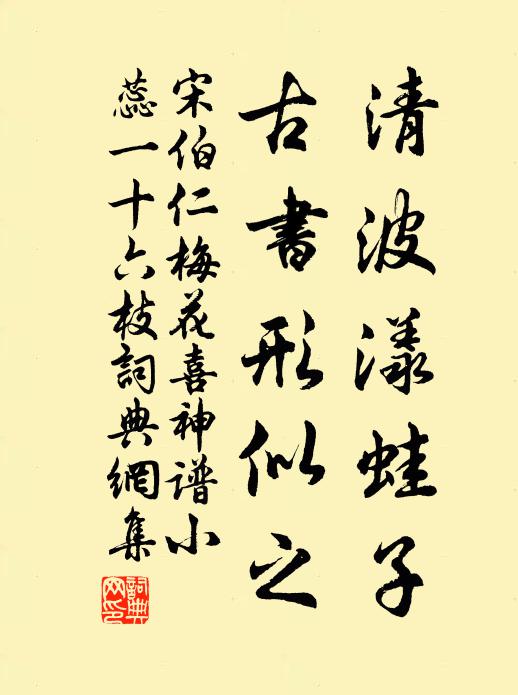 清波漾蛙子
古書形似之
宋伯仁梅花喜神谱小
蕊一十六枝詞典網集
詞典网印